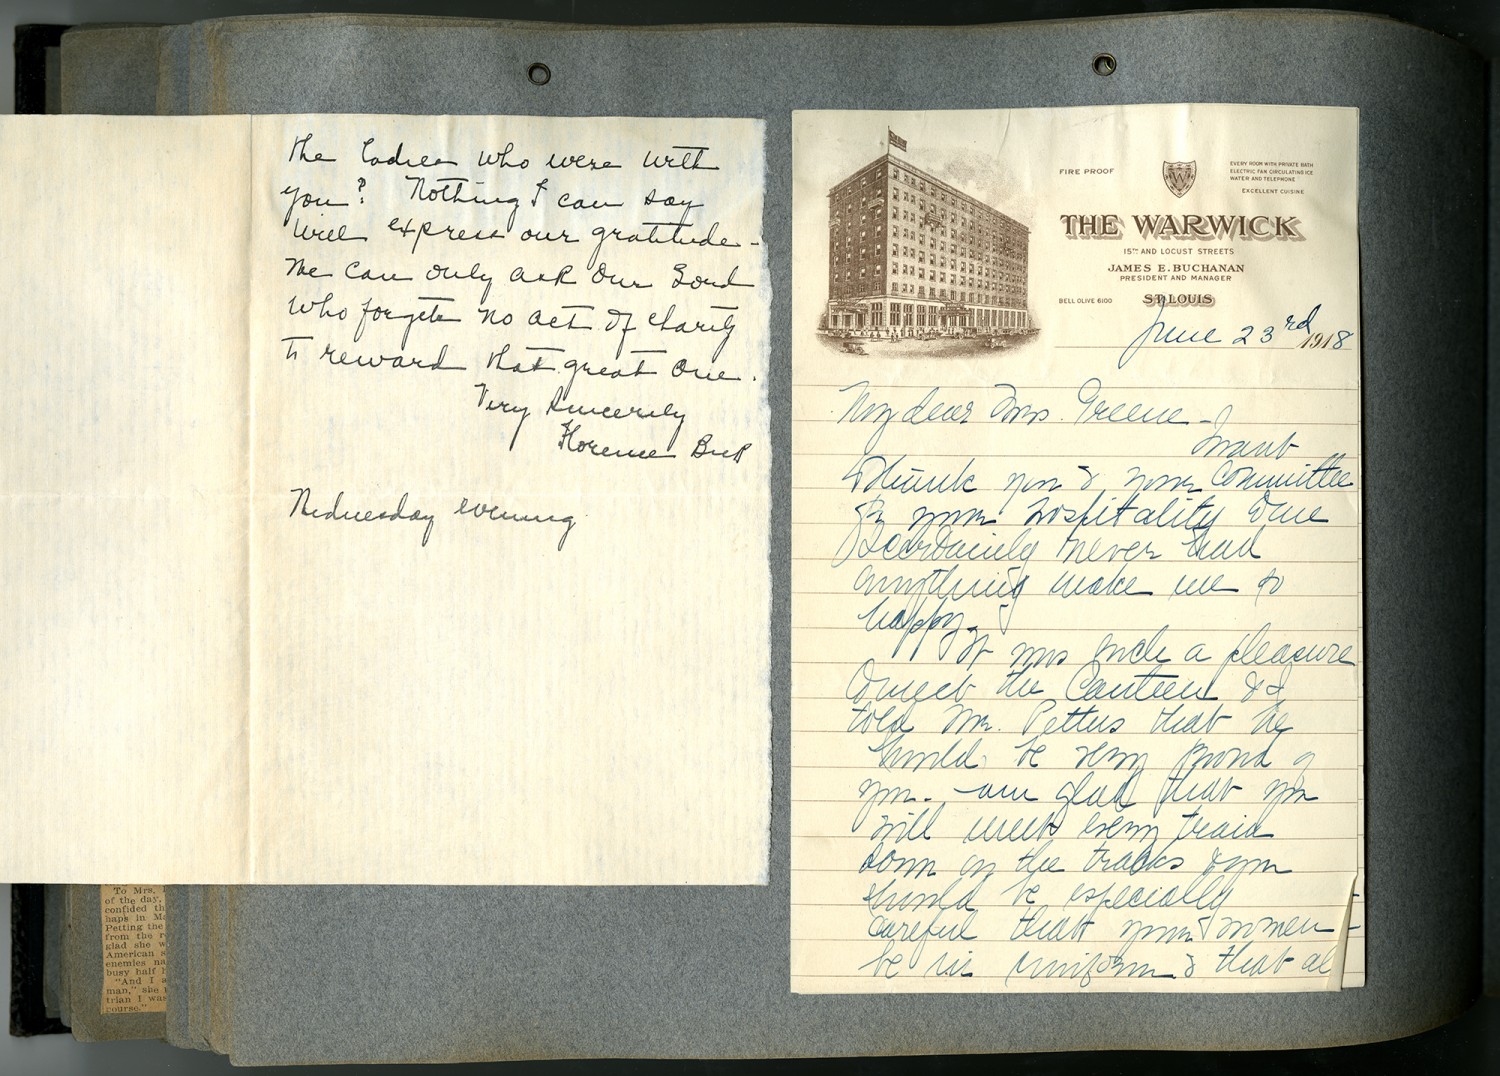 the ladies who were with
you? Nothing I can say
will express our gratitude -
We can only ask Our Lord
Who forgets no act of charity
to reward that great one.
Very Sincerely
Florence
Wednesday evening
To Mrs.
of the day,
confided th
haps in Ma
Petting the
from the r
glad she w
American s
enemies na
busy half h
"And I a
man," she
trian I was
course."
FIRE PROOF
W
EVERY ROOM WITH PRIVATE BATH
ELECTRIC FAN CIRCULATING ICE
WATER AND TELEPHONE
EXCELLENT CUISINE
THE WARWICK
15TH AND LOCUST STREETS
JAMES E. BUCHANAN
PRESIDENT AND MANAGER
BELL OLIVE 6100
ST. LOUIS
June 23rd 1918
My dear Mrs. Greene -
I want
to thank you & your Committee
for your hospitality
never had
anything make me so
happy.
It was such a pleasure
to meet the Canteen & I
told Mr. Pettus that he
should be very proud of
you. - am glad that you
will meet every train
down on the tracks & you
should be especially
careful that your women -
be in uniform & that al